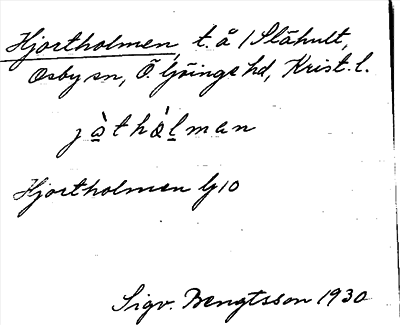 Hjortholmen t. å 1 Slähult,
Osby sn, Ö. Göinge hd, Krist. l.
jàthòlman
Hjortholmen G10
Sigv. Bengtsson 1930